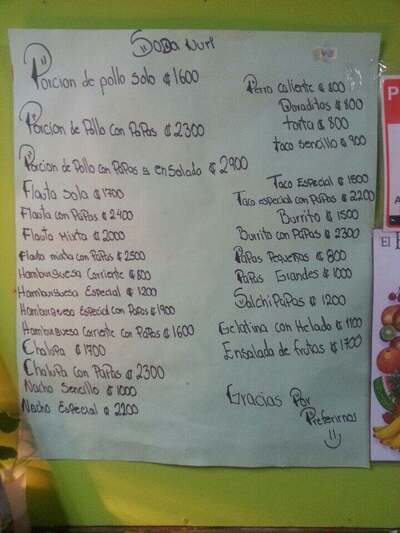 Soda Nuri
Porcion de pollo solo ₡1600
Porcion de Pollo con Papas ₡2300
Porcion de Pollo con Papas y ensalada ₡2900
Flauta Solo ₡1700
Flauta con Papas ₡2400
Flauta Mixta ₡2000
Flauta mixta con Papas ₡2500
Hamburguesa Corriente ₡800
Hamburguesa Especial ₡1200
Hamburguesa Especial con Papas ₡1900
Hamburguesa Corriente con Papas ₡1600
Chalupa ₡1700
Chalupa con Papas ₡2300
Nacho Sencillo ₡1000
Nacho Especial ₡2200
Perro caliente ₡800
Doraditos ₡800
torta ₡800
taco sencillo ₡900
Taco Especial ₡1500
Taco especial con Papas ₡2200
Burrito ₡1500
Burrito con Papas ₡2300
Papas Pequeñas ₡800
Papas Grandes ₡1000
SalchiPapas ₡1200
Gelatina con Helado ₡1100
Ensalada de frutas ₡1700
Gracias Por
Preferirnos
P
A
El